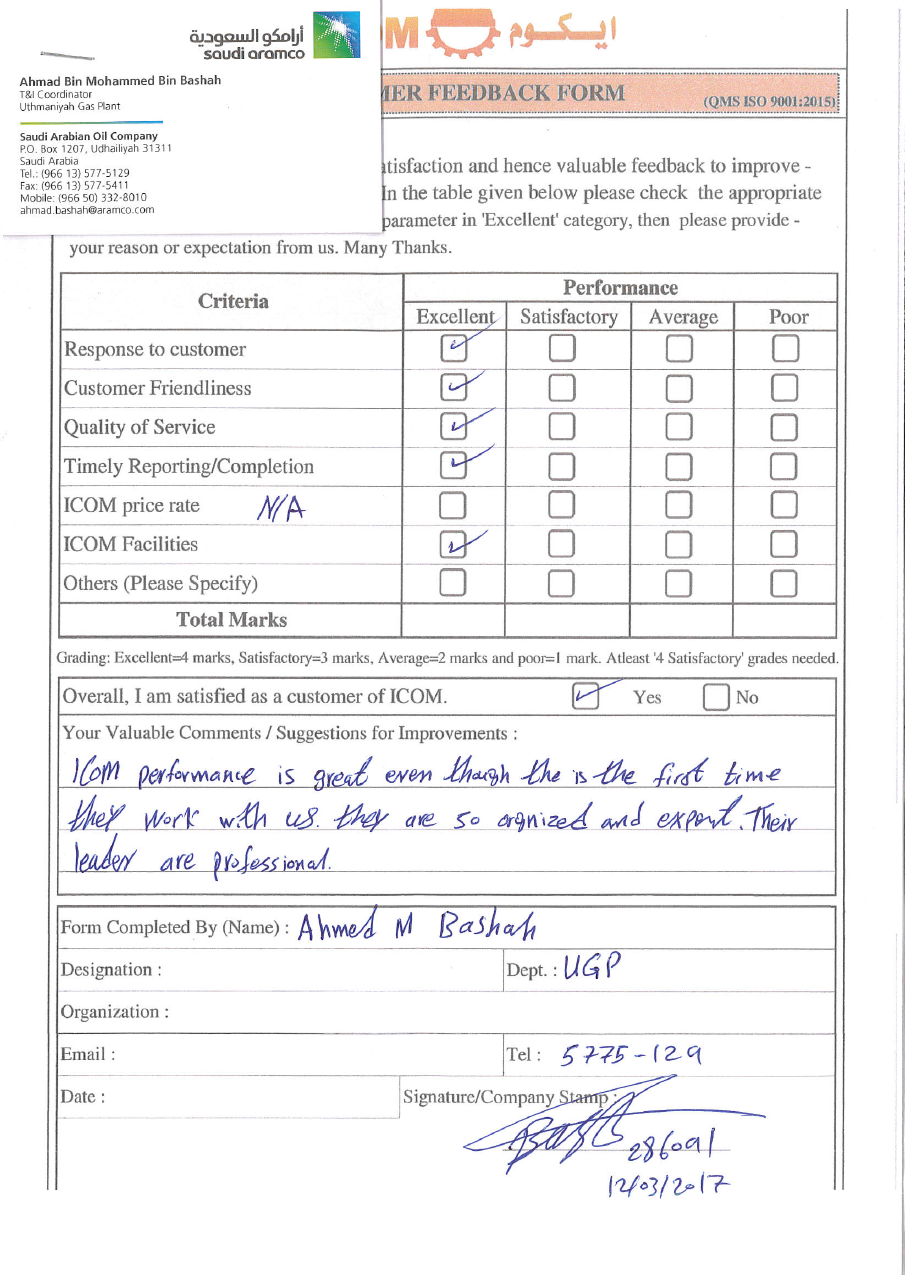 أرامكو السعودية
saudi aramco
Ahmad Bin Mohammed Bin Bashah
T&I Coordinator
Uthmaniyah Gas Plant
Saudi Arabian Oil Company
P.O. Box 1207, Udhailiyah 31311
Saudi Arabia
Tel.: (966 13) 577-5129
Fax: (966 13) 577-5411
Mobile: (966 50) 332-8010
ahmad.bashah@aramco.com
OM ايكوم
MER FEEDBACK FORM (QMS ISO 9001:2015)
tisfaction and hence valuable feedback to improve -
In the table given below please check the appropriate
parameter in 'Excellent' category, then please provide -
your reason or expectation from us. Many Thanks.
Criteria Performance
Excellent Satisfactory Average Poor
Response to customer
Customer Friendliness
Quality of Service
Timely Reporting/Completion
ICOM price rate N/A
ICOM Facilities
Others (Please Specify)
Total Marks
Grading: Excellent=4 marks, Satisfactory=3 marks, Average=2 marks and poor=1 mark. Atleast '4 Satisfactory' grades needed.
Overall, I am satisfied as a customer of ICOM. Yes No
Your Valuable Comments / Suggestions for Improvements :
ICOM performance is great even though the is the first time
they work with us. they are so orgnized and expert. Their
leader are professional.
Form Completed By (Name) : Ahmed M Bashah
Designation : Dept. : UGP
Organization :
Email : Tel : 5775-129
Date : Signature/Company Stamp :
286091
12/03/2017